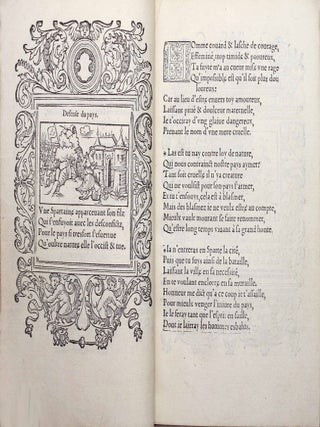 Defense du pays.
Vne Spartaine apperceuant son filz
Qui s'enfuyoit auec les desconfitz,
Pour le pays si tresfort s'esuertue
Qu'oultre nature elle l'occist & tue.
HOmme couard & lasche de courage,
Effeminé, trop timide & paoureux,
Ta fuyte m'a au coeur mys vne rage
Qu'impossible est qu'il soit plus doulloureux:
Car au lieu d'estre enuers toy amoureux,
Laissant pitié & doulceur maternelle,
Ie t'occiray d'vng glaiue dangereux,
Prenant le nom d'vne mere cruelle.
Las es tu nay contre loy de nature,
Qui nous contrainct nostre pays aymer?
Tant soit cruelle il n'y a creature
Qui ne voulsist pour son pays s'armer,
Et tu t'enfouys, cela est à blasmer,
Mais des blasmer ie ne veulx estre au compte,
Mieulx vault mourant se faire renommer,
Qu'estre long temps viuant à sa grand honte.
Ia n'entreras en Sparte la cité,
Puis que tu fuys ainsi de la bataille,
Laissant la ville en sa necessité,
En te voulant enclorre en sa muraille.
Honneur me dict qu'à ce coup ie t'assaille,
Pour mieulx venger l'iniure du pays,
Ie le feray tant que l'esprit en saille,
Dont ie lairray les hommes esbahis.